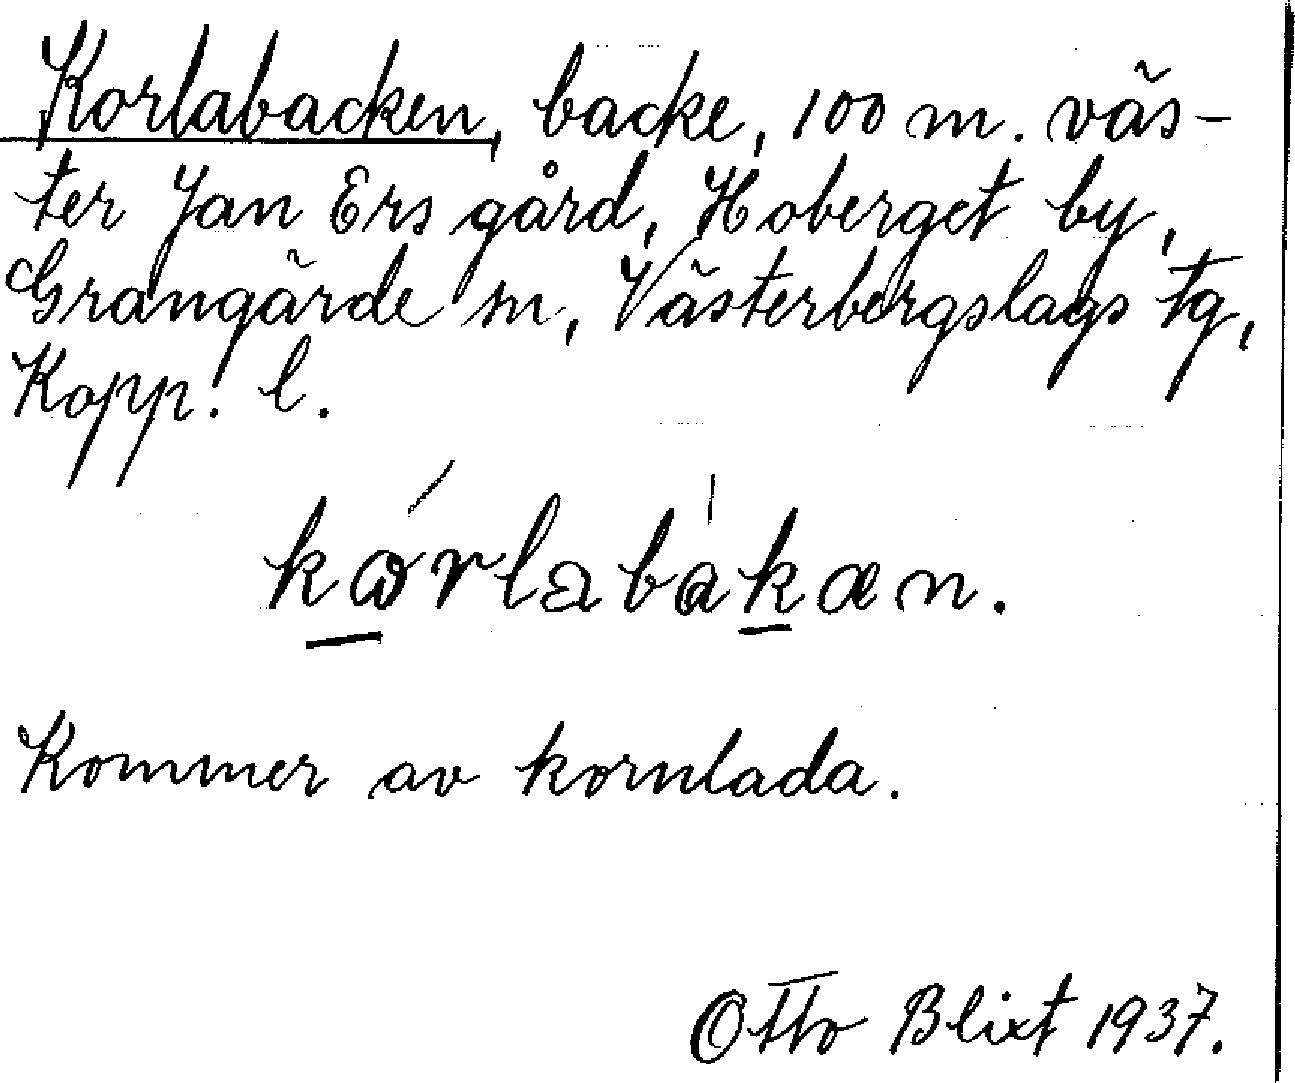 Korlabacken, backe, 100 m. väs-
ter Jan Ers gård, Hoberget by,
Grangärde sn, Västerbergslags tg,
Kopp. l.
kɷ́rlabàkæn.
Kommer av kornlada.
Otto Blixt 1937.